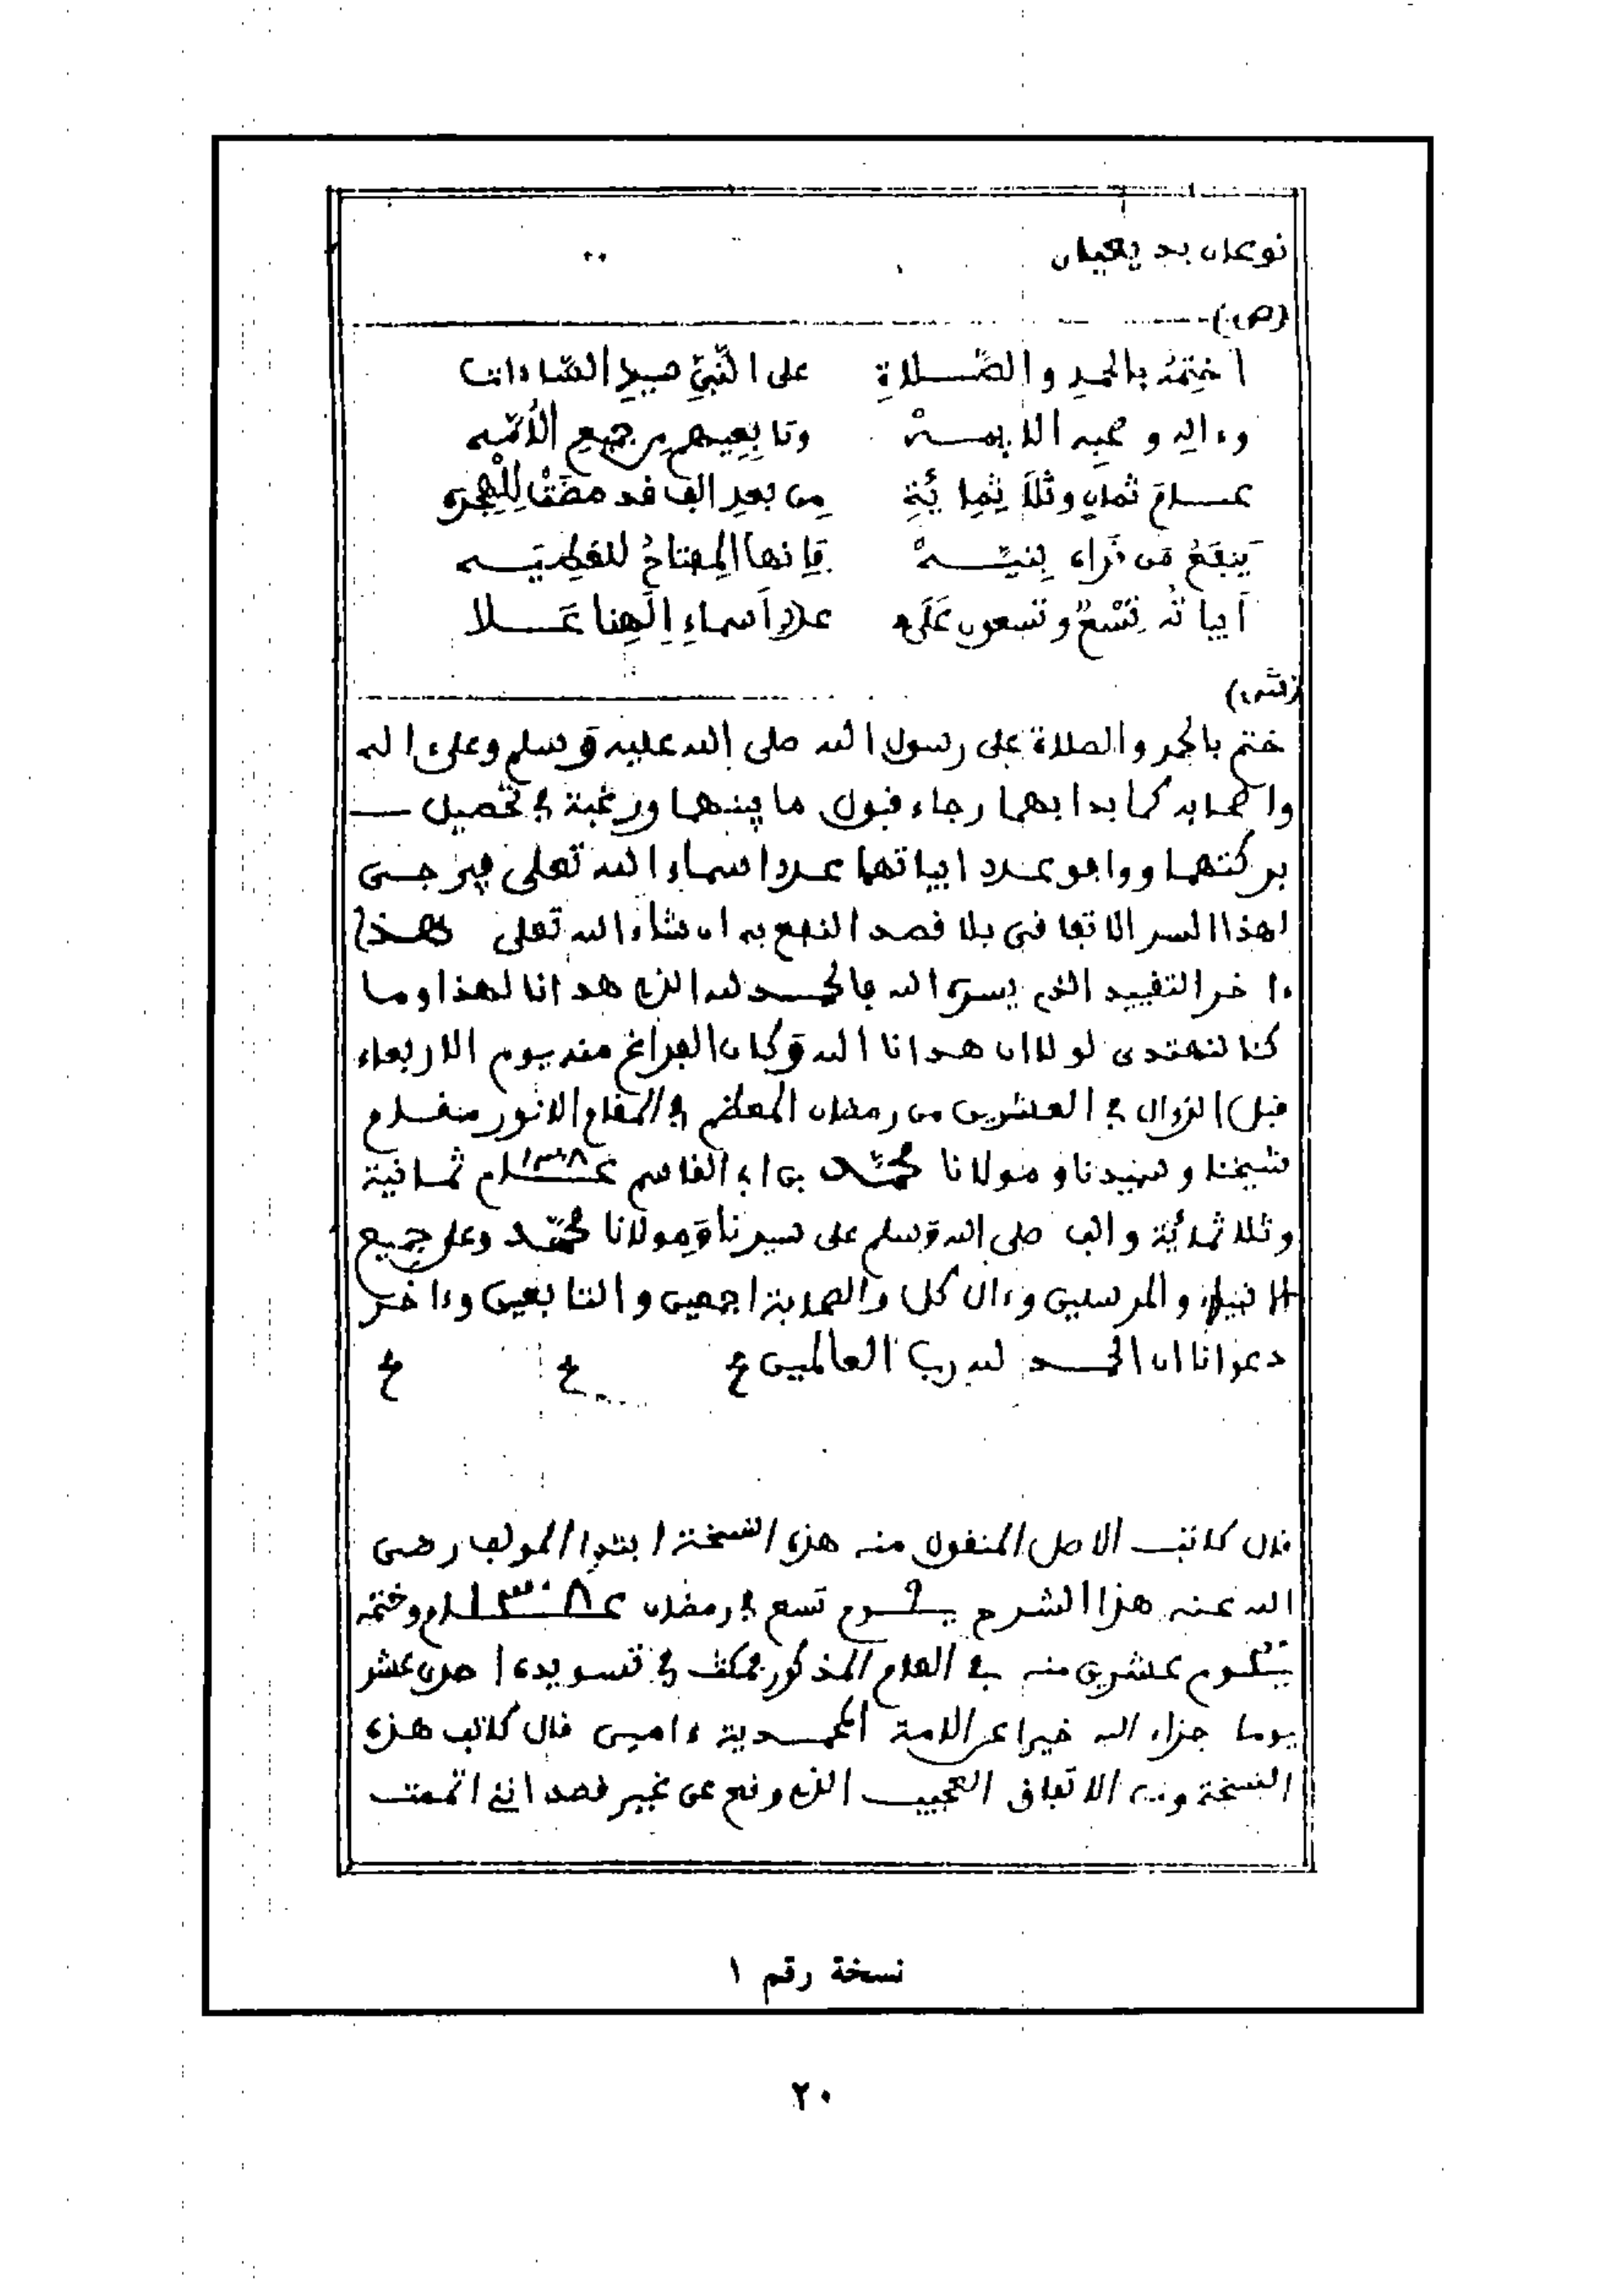 نوعان بد يعيان
(ص)
أختِمُه بالحمدِ والصّلاةِ على النّبيِّ سيدِ السّادات
وءاله وصحبه الايمه وتابعيهم من جميع الأمّه
عام ثمانٍ وثلاثمائةِ من بعد الف قد مضت للهجره
ينفع من قراه بنيّه فإنها المفتاح للعطيّه
أبياته تسعٌ وتسعون على عدد أسماء إلهنا علا
(ش)
ختم بالحمد والصلاة على رسول الله صلى الله عليه وسلم وعلى ءاله
واصحابه كما بدا بهما رجاء قبول ما بينهما ورغبة في تحصيل
بركتهما ووافق عدد ابياتها عدد اسماء الله تعلى فيرجى
لهذا السر الاتفاقي بلا قصد النفع به ان شاء الله تعلى هذا
ءاخر التقييد الذي يسره الله فالحمد لله الذي هدانا لهذا وما
كنا لنهتدى لولا ان هدانا الله وكان الفراغ منه يوم الاربعاء
قبل الزوال في العشرين من رمضان المعظم في المقام الانور مقام
شيخنا وسيدنا ومولانا محمد بن ابي القاسم عام ١٣٠٨ ثمانية
وثلاثمائة والف صلى الله وسلم على سيدنا ومولانا محمد وعلى جميع
الانبياء والمرسلين وءال كل والصحابة اجمعين والتابعين وءاخر
دعوانا ان الحمد لله رب العالمين ع ع ع
قال كاتب الاصل المنقول منه هذه النسخة ابتدا المولف رضى
الله عنه هذا الشرح يوم تسع في رمضان عام ١٣٠٨ وختمه
يوم عشرين منه في العام المذكور فمكث في تسويده احدى عشر
يوما جزاه الله خيرا عن الامة المحمدية ءامين قال كاتب هذه
النسخة ومن الاتفاق العجيب الذي وقع عن غير قصد انني اتممت
نسخة رقم ١
٢٠